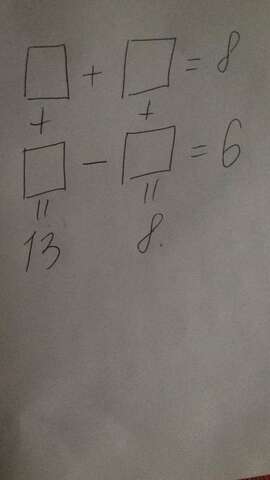 □ + □ = 8
+ +
□ - □ = 6
= =
13 8.